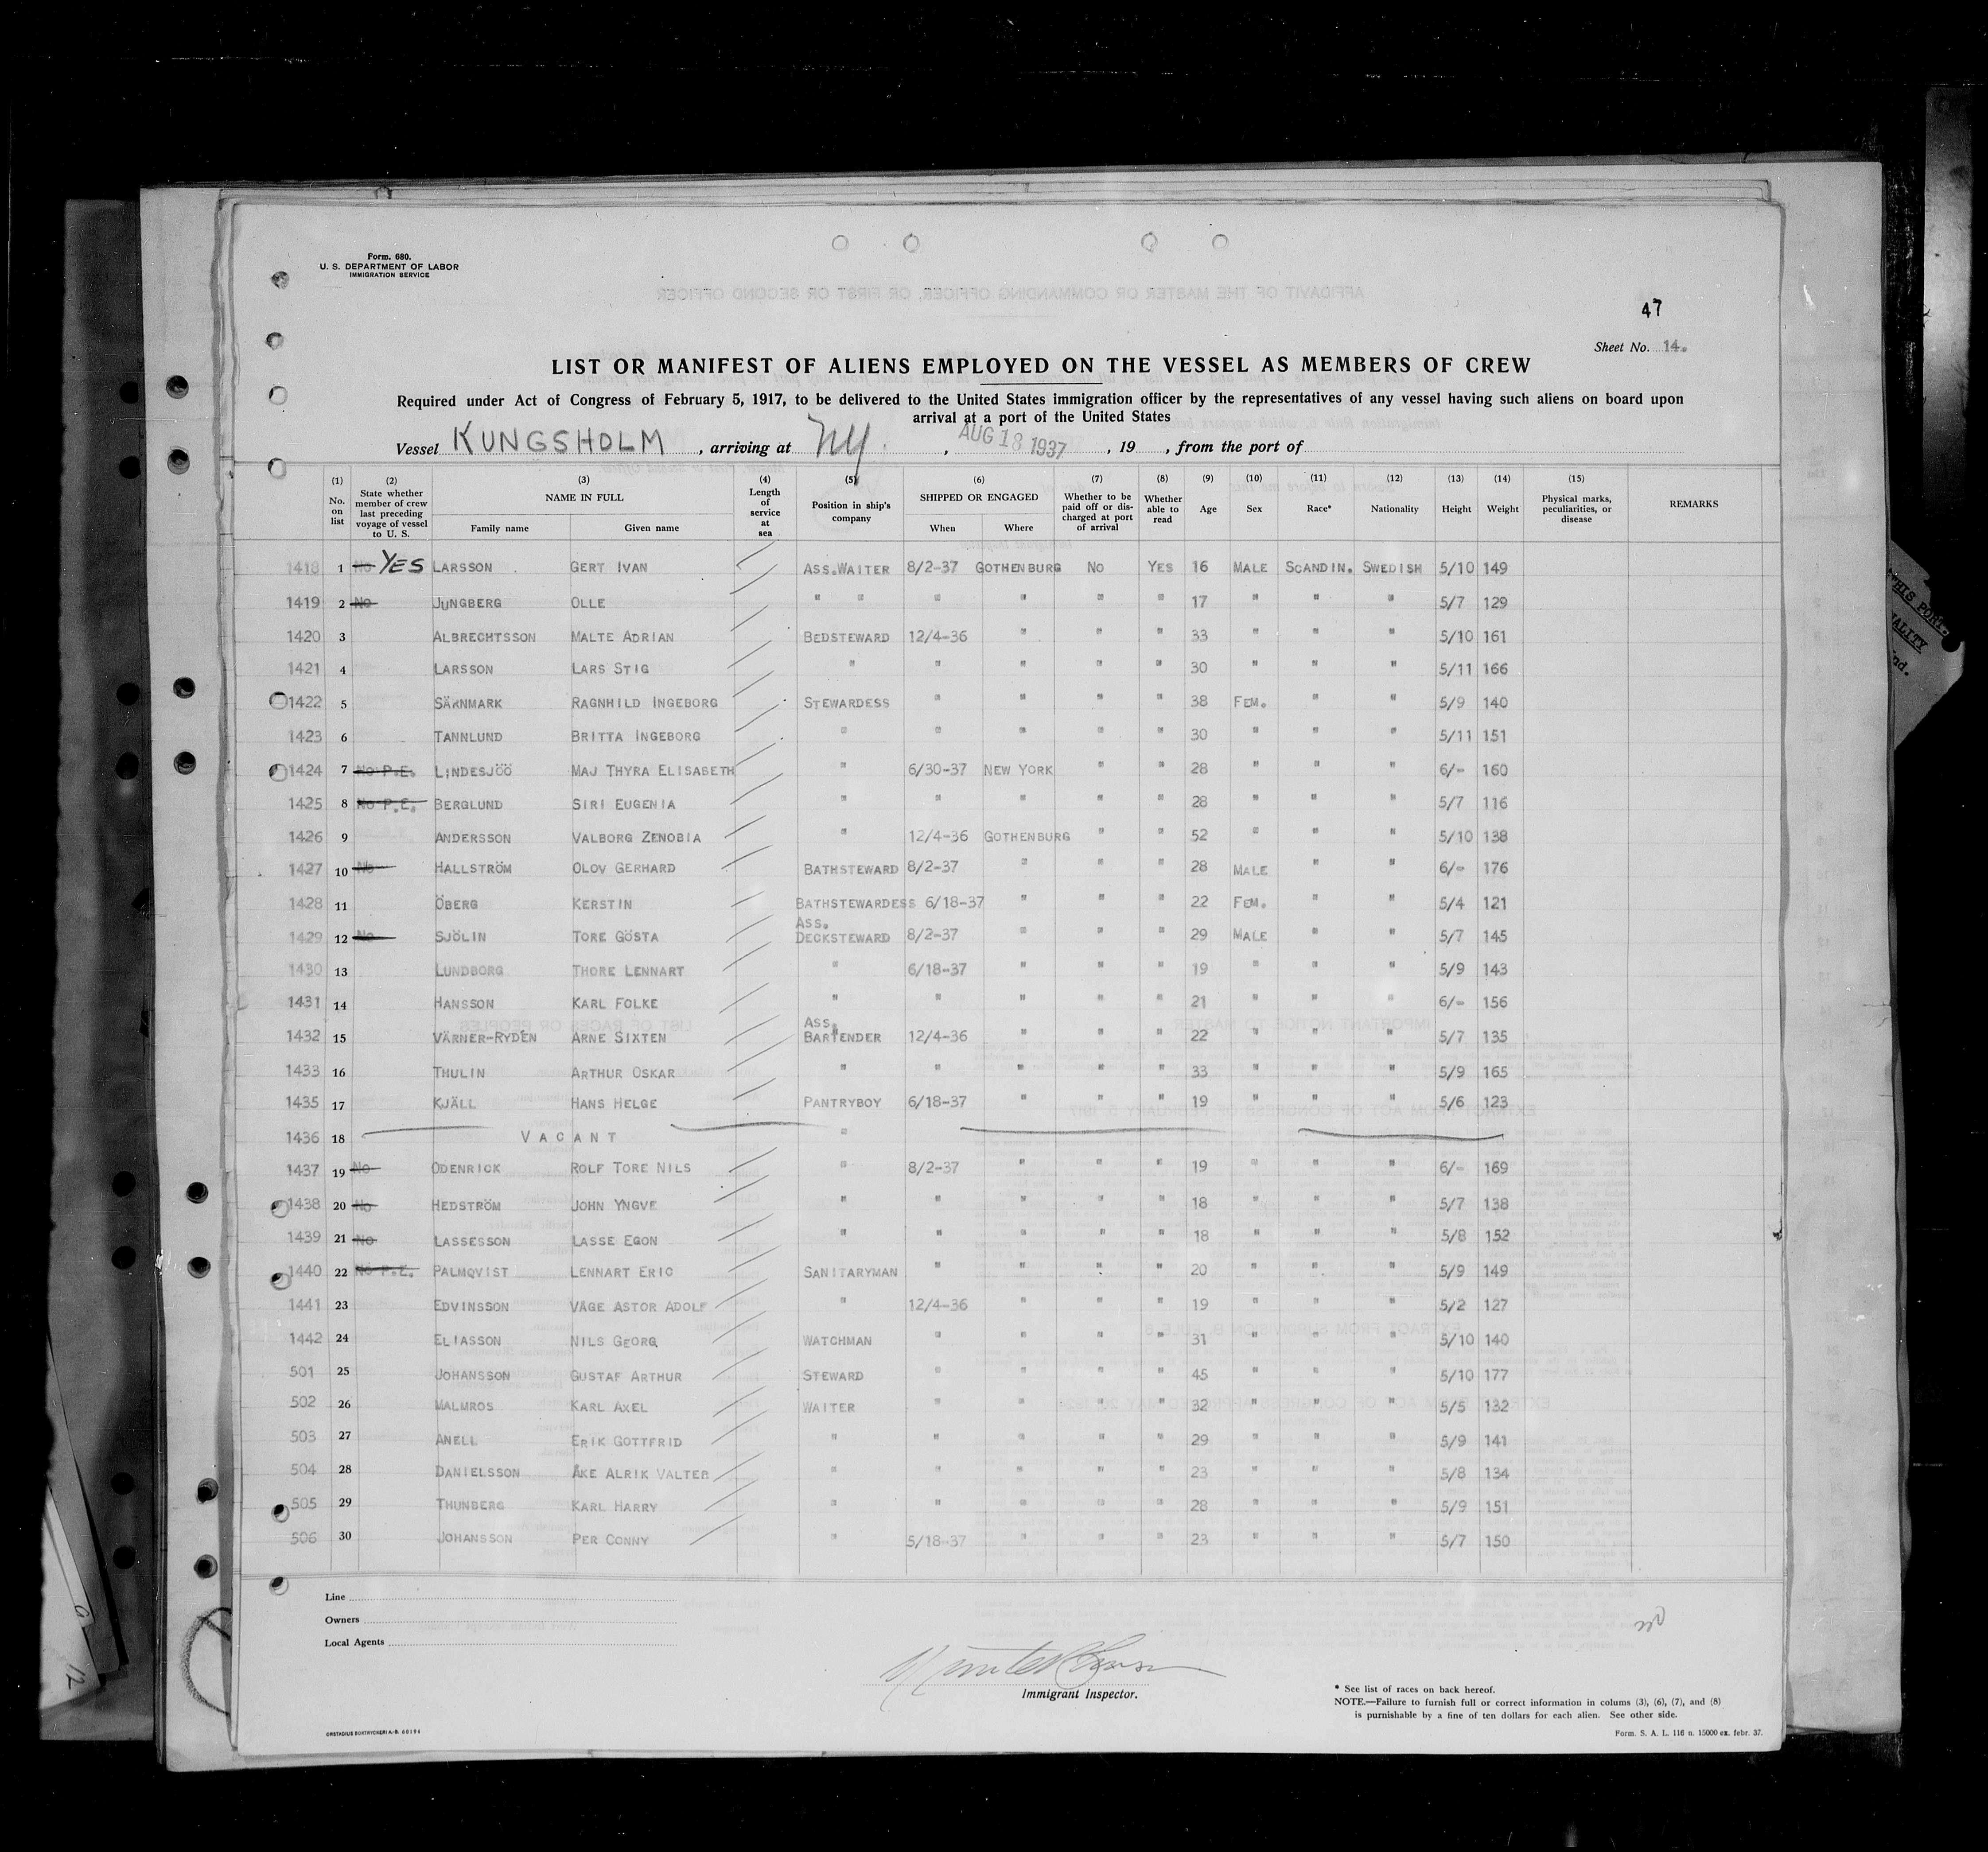 Form. 680.
U. S. DEPARTMENT OF LABOR
IMMIGRATION SERVICE
47
Sheet No. 14.
LIST OR MANIFEST OF ALIENS EMPLOYED ON THE VESSEL AS MEMBERS OF CREW
Required under Act of Congress of February 5, 1917, to be delivered to the United States immigration officer by the representatives of any vessel having such aliens on board upon
arrival at a port of the United States
Vessel KUNGSHOLM , arriving at NY. , AUG 18 1937 , 19 , from the port of
(1) No. on list (2) State whether member of crew last preceding voyage of vessel to U. S. (3) NAME IN FULL Family name Given name (4) Length of service at sea (5) Position in ship's company (6) SHIPPED OR ENGAGED When Where (7) Whether to be paid off or discharged at port of arrival (8) Whether able to read (9) Age (10) Sex (11) Race* (12) Nationality (13) Height (14) Weight (15) Physical marks, peculiarities, or disease REMARKS
1418 1 No YES LARSSON GERT IVAN ASS.WAITER 8/2-37 GOTHENBURG NO YES 16 MALE SCANDIN. SWEDISH 5/10 149
1419 2 No JUNGBERG OLLE " " " " " " 17 " " " 5/7 129
1420 3 ALBRECHTSSON MALTE ADRIAN BEDSTEWARD 12/4-36 " " " 33 " " " 5/10 161
1421 4 LARSSON LARS STIG " " " " " 30 " " " 5/11 166
1422 5 SÄRNMARK RAGNHILD INGEBORG STEWARDESS " " " " 38 FEM. " " 5/9 140
1423 6 TANNLUND BRITTA INGEBORG " " " " " 30 " " " 5/11 151
1424 7 No P.E. LINDESJÖÖ MAJ THYRA ELISABETH " 6/30-37 NEW YORK " " 28 " " " 6/- 160
1425 8 No P.E. BERGLUND SIRI EUGENIA " " " " " 28 " " " 5/7 116
1426 9 ANDERSSON VALBORG ZENOBIA " 12/4-36 GOTHENBURG " " 52 " " " 5/10 138
1427 10 No HALLSTRÖM OLOV GERHARD BATHSTEWARD 8/2-37 " " " 28 MALE " " 6/- 176
1428 11 ÖBERG KERSTIN BATHSTEWARDESS 6/18-37 " " " 22 FEM. " " 5/4 121
1429 12 No SJÖLIN TORE GÖSTA ASS. DECKSTEWARD 8/2-37 " " " 29 MALE " " 5/7 145
1430 13 LUNDBORG THORE LENNART " 6/18-37 " " " 19 " " " 5/9 143
1431 14 HANSSON KARL FOLKE " " " " " 21 " " " 6/- 156
1432 15 VÄRNER-RYDÉN ARNE SIXTEN ASS. BARTENDER 12/4-36 " " " 22 " " " 5/7 135
1433 16 THULIN ARTHUR OSKAR " " " " " 33 " " " 5/9 165
1435 17 KJÄLL HANS HELGE PANTRYBOY 6/18-37 " " " 19 " " " 5/6 123
1436 18 VACANT "
1437 19 No ODENRICK ROLF TORE NILS " 8/2-37 " " " 19 " " " 6/- 169
1438 20 No HEDSTRÖM JOHN YNGVE " " " " " 18 " " " 5/7 138
1439 21 No LASSESSON LASSE EGON " " " " " 18 " " " 5/8 152
1440 22 No P.E. PALMQVIST LENNART ERIC SANITARYMAN " " " " 20 " " " 5/9 149
1441 23 EDVINSSON VÅGE ASTOR ADOLF " 12/4-36 " " " 19 " " " 5/2 127
1442 24 ELIASSON NILS GEORG WATCHMAN " " " " 31 " " " 5/10 140
501 25 JOHANSSON GUSTAF ARTHUR STEWARD " " " " 45 " " " 5/10 177
502 26 MALMROS KARL AXEL WAITER " " " " 32 " " " 5/5 132
503 27 ANELL ERIK GOTTFRID " " " " " 29 " " " 5/9 141
504 28 DANIELSSON ÅKE ALRIK VALTER " " " " " 23 " " " 5/8 134
505 29 THUNBERG KARL HARRY " " " " " 28 " " " 5/9 151
506 30 JOHANSSON PER CONNY " 5/18-37 " " " 23 " " " 5/7 150
Line
Owners
Local Agents
Immigrant Inspector.
* See list of races on back hereof.
NOTE.—Failure to furnish full or correct information in colums (3), (6), (7), and (8)
is punishable by a fine of ten dollars for each alien. See other side.
Form. S. A. L. 116 n. 15000 ex. febr. 37.